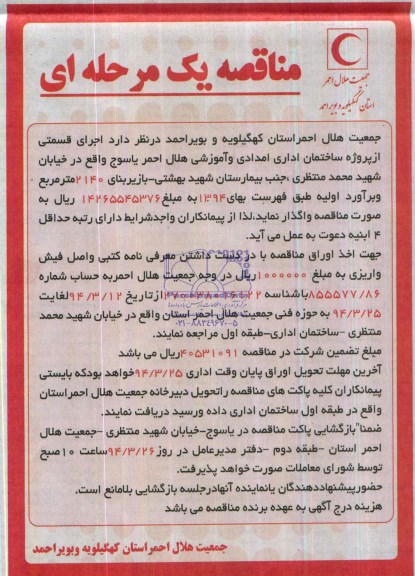 جمعیت هلال احمر
استان کهگیلویه و بویراحمد
مناقصه یک مرحله ای
جمعیت هلال احمراستان کهگیلویه و بویراحمد درنظر دارد اجرای قسمتی
ازپروژه ساختمان اداری امدادی وآموزشی هلال احمر یاسوج واقع در خیابان
شهید محمد منتظری ،جنب بیمارستان شهید بهشتی-بازیربنای ۲۱۴۰مترمربع
وبرآورد اولیه طبق فهرست بهای۱۳۹۴به مبلغ۱۴۲۶۵۵۴۵۳۷۶ ریال به
صورت مناقصه واگذار نماید،لذا از پیمانکاران واجدشرایط دارای رتبه حداقل
۴ ابنیه دعوت به عمل می آید.
جهت اخذ اوراق مناقصه با در دست داشتن معرفی نامه کتبی واصل فیش
واریزی به مبلغ ۱۰۰۰۰۰۰ریال در وجه جمعیت هلال احمربه حساب شماره
۸۵۵۵۷۷/۸۶باشناسه از تاریخ ۹۴/۳/۱۲لغایت
۹۴/۳/۲۵ به حوزه فنی جمعیت هلال احمر استان واقع در خیابان شهید محمد
منتظری -ساختمان اداری-طبقه اول مراجعه نمایند.
۰۲۱-۸۸۳۴۹۶۷۰-۵
مبلغ تضمین شرکت در مناقصه ۴۰۵۳۱۰۹۱ریال می باشد
آخرین مهلت تحویل اوراق پایان وقت اداری ۹۴/۳/۲۵خواهد بودکه بایستی
پیمانکاران کلیه پاکت های مناقصه راتحویل دبیرخانه جمعیت هلال احمراستان
واقع در طبقه اول ساختمان اداری داده ورسید دریافت نمایند.
ضمنا"بازگشایی پاکت مناقصه در یاسوج-خیابان شهید منتظری -جمعیت هلال
احمر استان -طبقه دوم -دفتر مدیرعامل در روز ۹۴/۳/۲۶ساعت ۱۰صبح
توسط شورای معاملات صورت خواهد پذیرفت.
حضورپیشنهاددهندگان یانماینده آنهادرجلسه بازگشایی بلامانع است.
هزینه درج آگهی به عهده برنده مناقصه می باشد
جمعیت هلال احمراستان کهگیلویه وبویراحمد